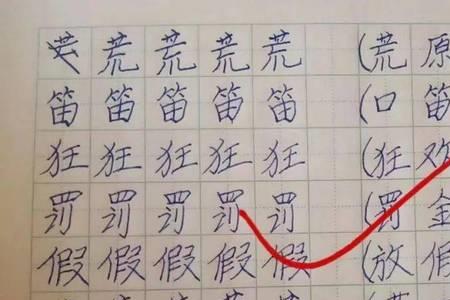 荒荒荒荒荒（荒原
笛笛笛笛笛（口笛
狂狂狂狂狂（狂欢
罚罚罚罚罚（罚金
假假假假假（放假